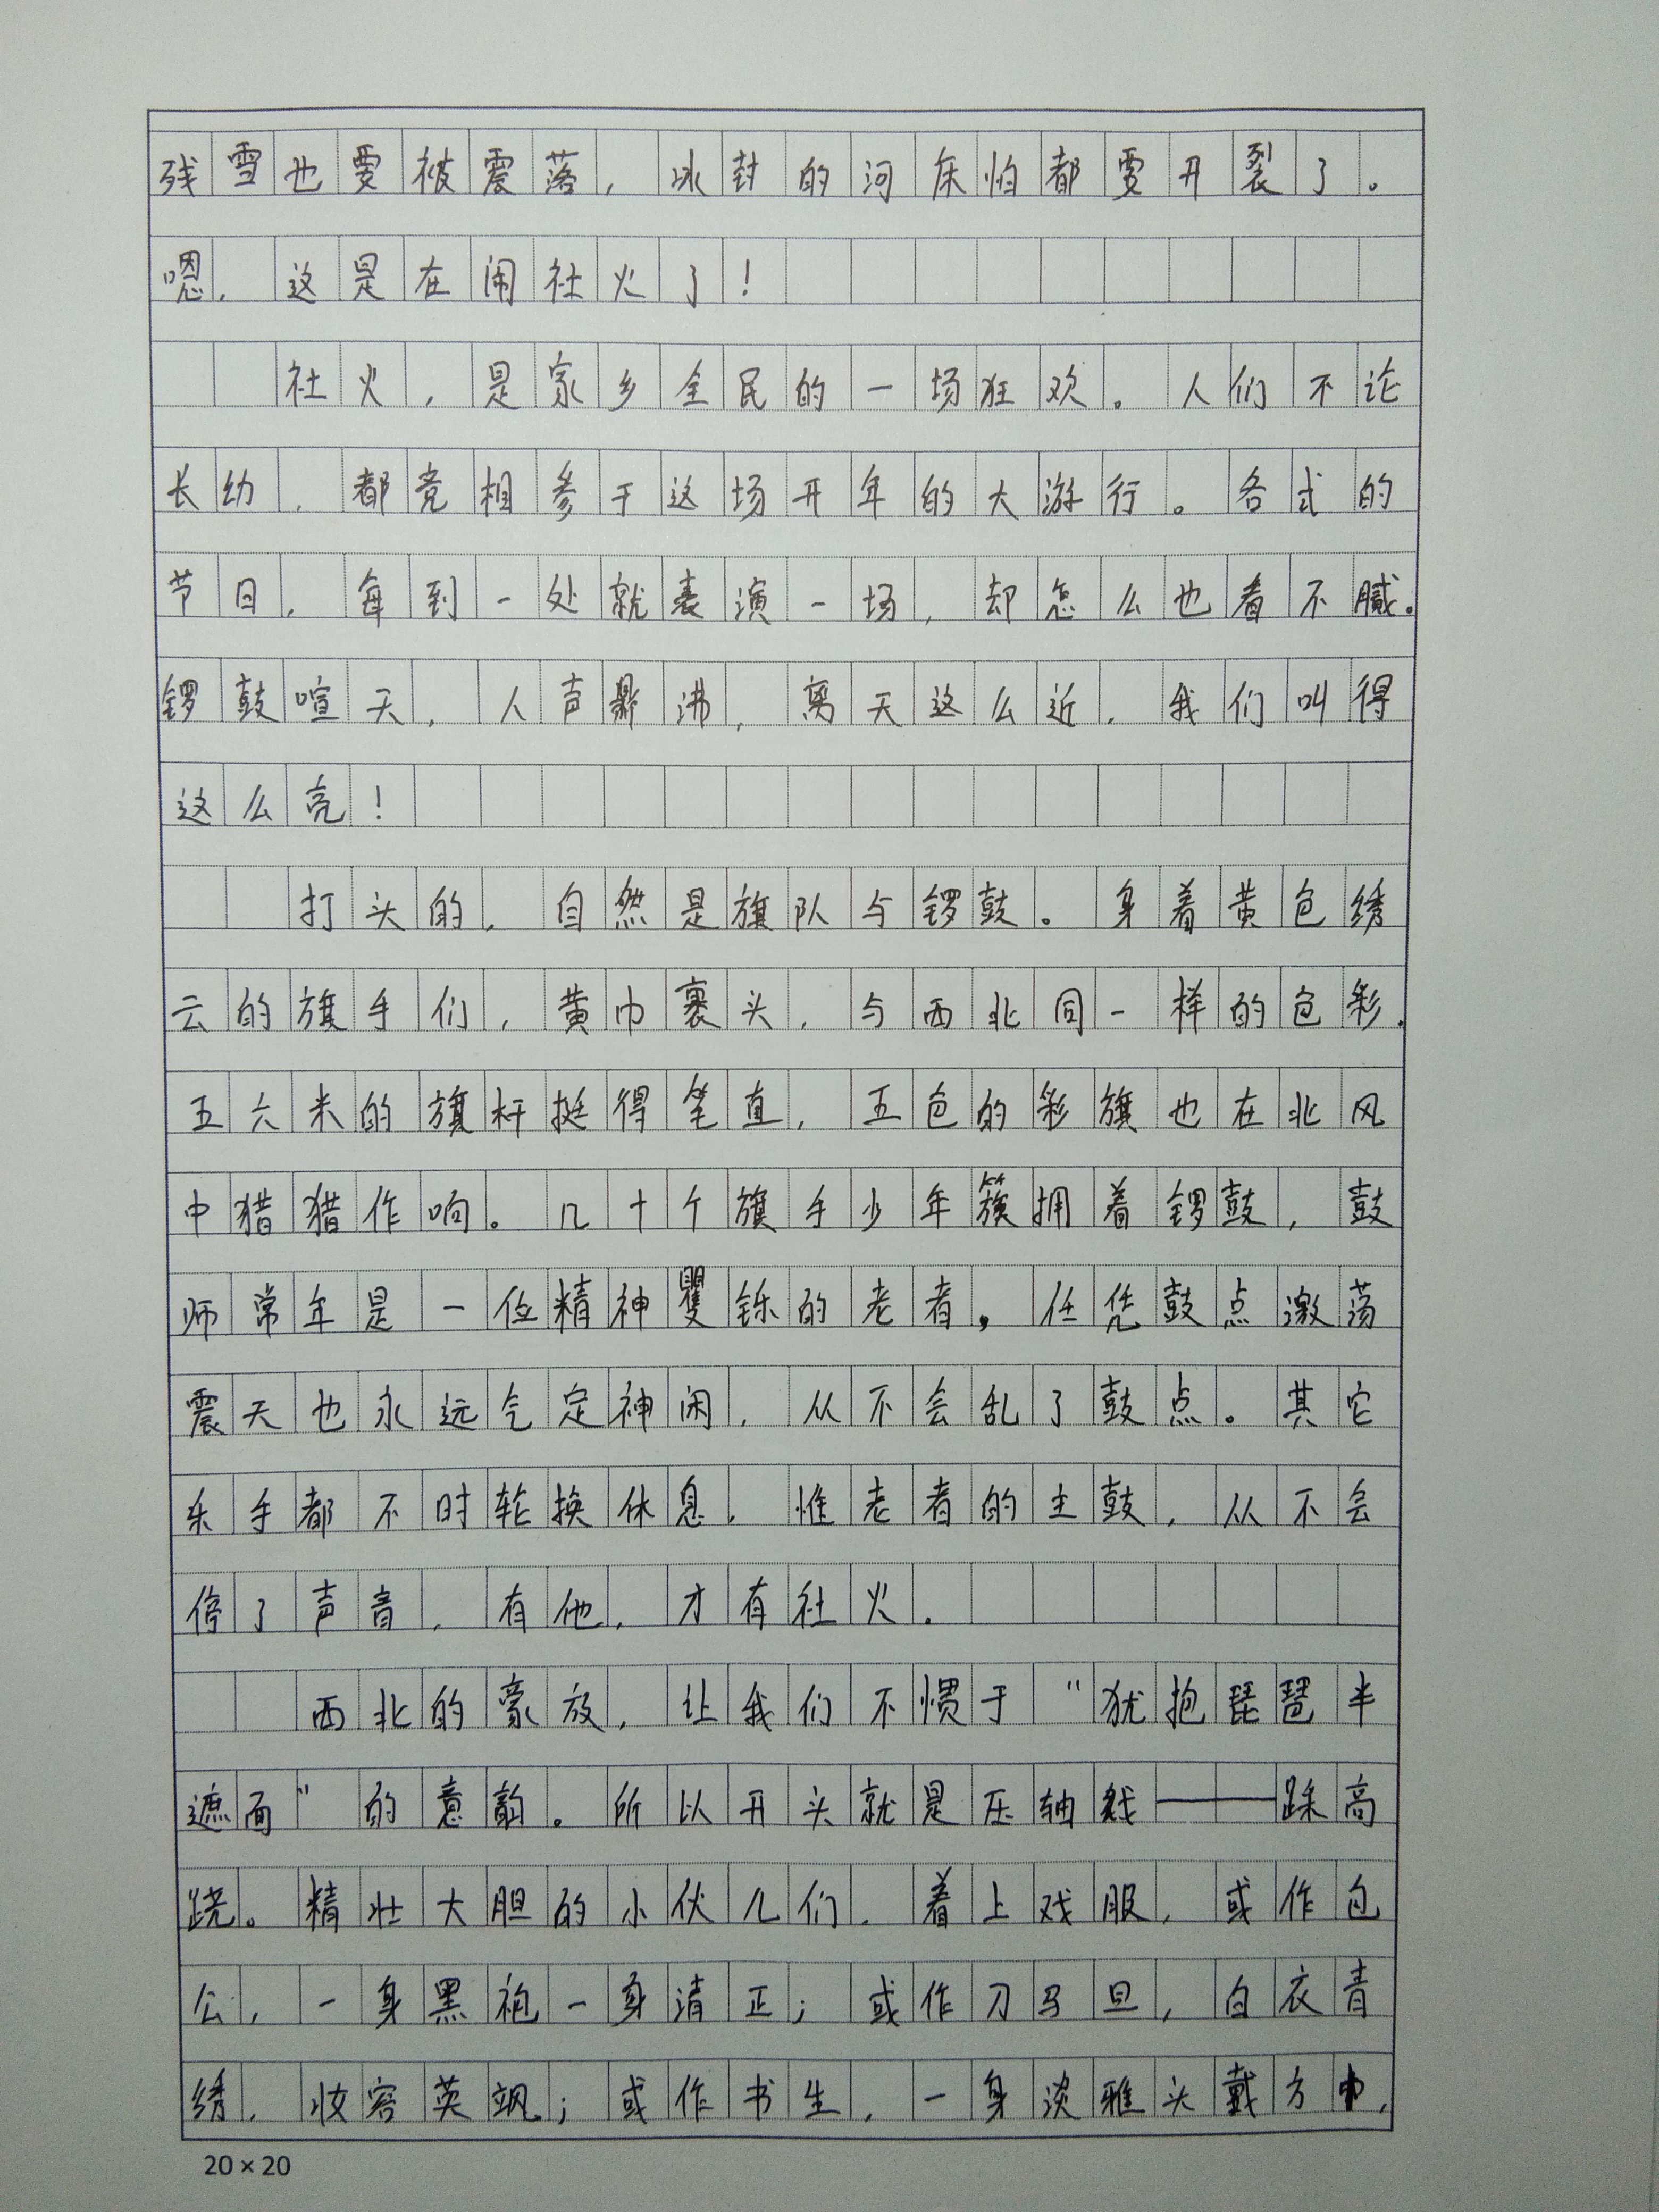 残雪也要被震落，冰封的河床怕都要开裂了。
嗯，这是在闹社火了！
社火，是家乡全民的一场狂欢。人们不论
长幼，都竞相参于这场开年的大游行。各式的
节目，每到一处就表演一场，却怎么也看不腻。
锣鼓喧天，人声鼎沸，离天这么近，我们叫得
这么亮！
打头的，自然是旗队与锣鼓。身着黄色绣
云的旗手们，黄巾裹头，与西北同一样的色彩.
五六米的旗杆挺得笔直，五色的彩旗也在北风
中猎猎作响。几十个旗手少年簇拥着锣鼓，鼓
师常年是一位精神矍铄的老者，任凭鼓点激荡
震天也永远气定神闲，从不会乱了鼓点。其它
乐手都不时轮换休息，惟老者的主鼓，从不会
停了声音，有他，才有社火.
西北的豪放，让我们不惯于“犹抱琵琶半
遮面”的意韵。所以开头就是压轴戏——踩高
跷。精壮大胆的小伙儿们，着上戏服，或作包
公，一身黑袍一身清正；或作刀马旦，白衣青
绣，妆容英飒；或作书生，一身淡雅头戴方巾，
20×20